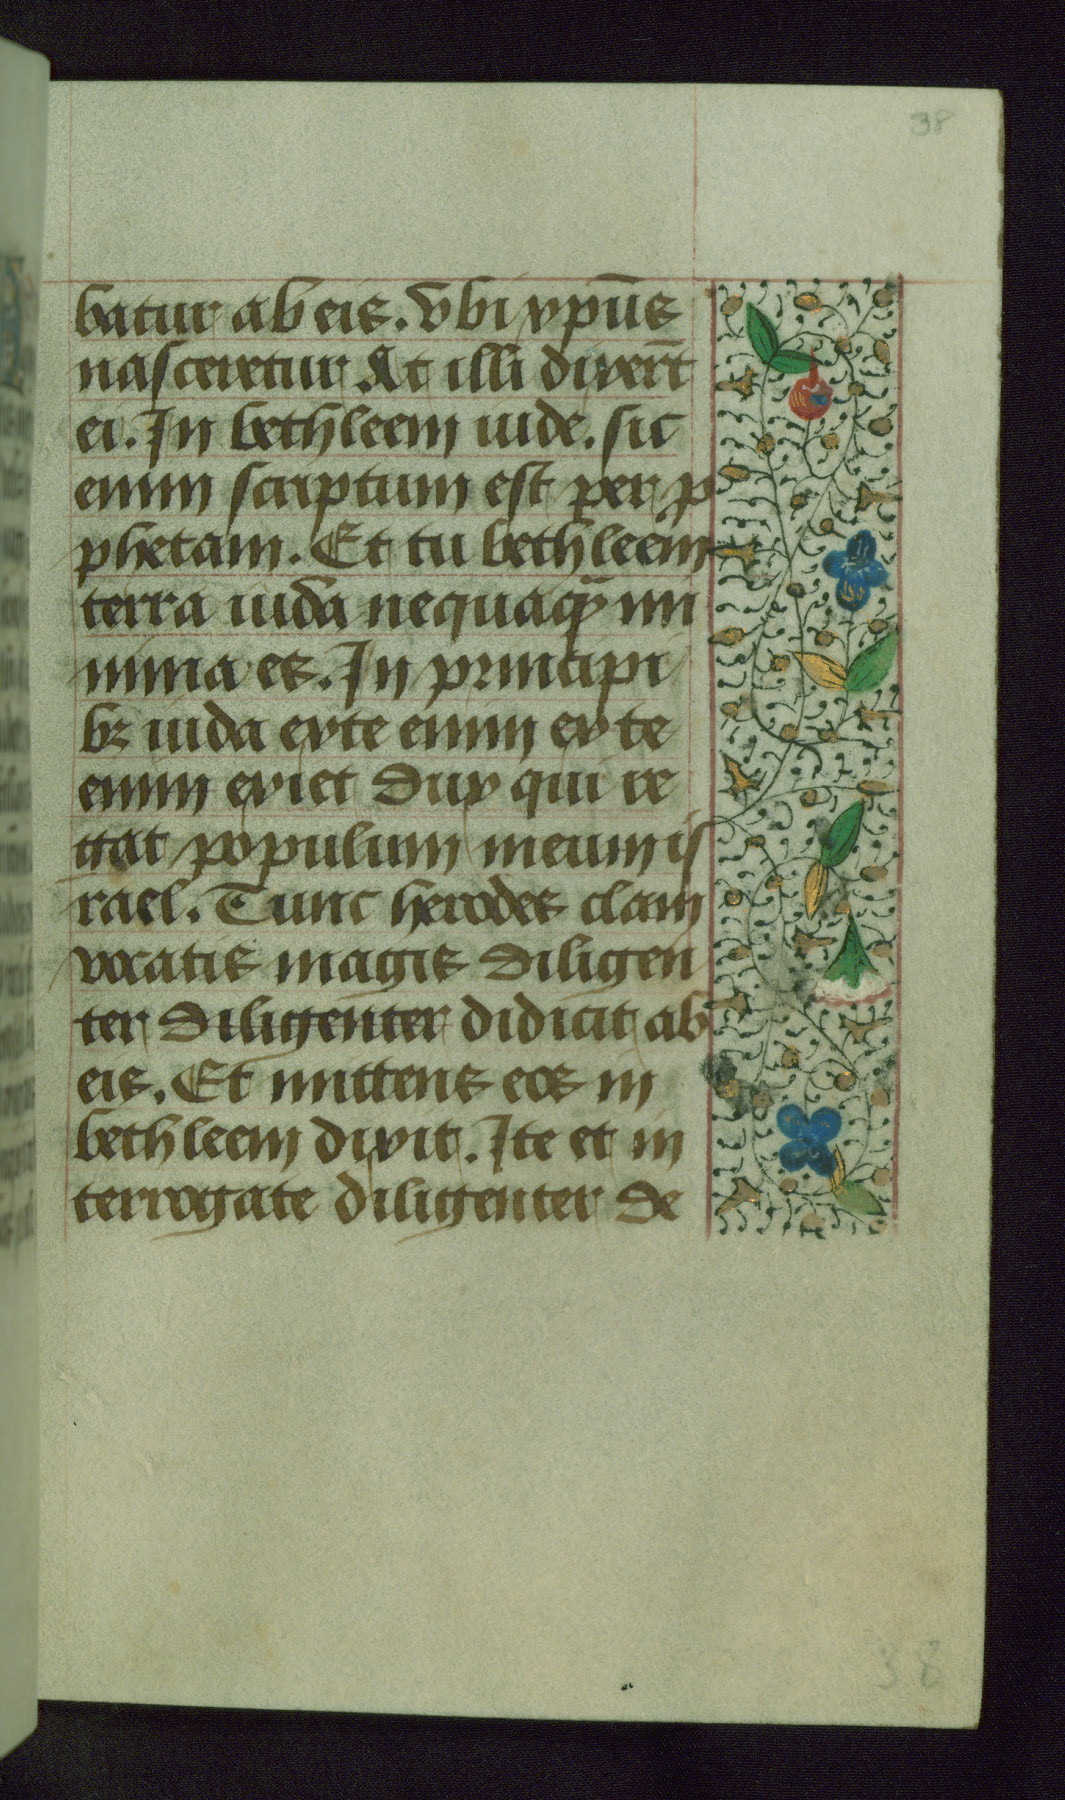 38
batur ab eis. Vbi xpūs
nasceretur At illi dixert̄
ei. In bethleem iude. sic
enim scriptum est per p
phetam. Et tu bethleem
terra iuda nequaq̄ mi
nima es. In principi
bꝫ iuda exte enim ex te
enim exiet dux qui re
ttat populum meum is
rael. Tunc herodes clam
vocatis magis diligen
ter diligenter didicit ab
eis. Et mittens eos in
bethleem dixit. Ite et in
terrogate diligenter de
38